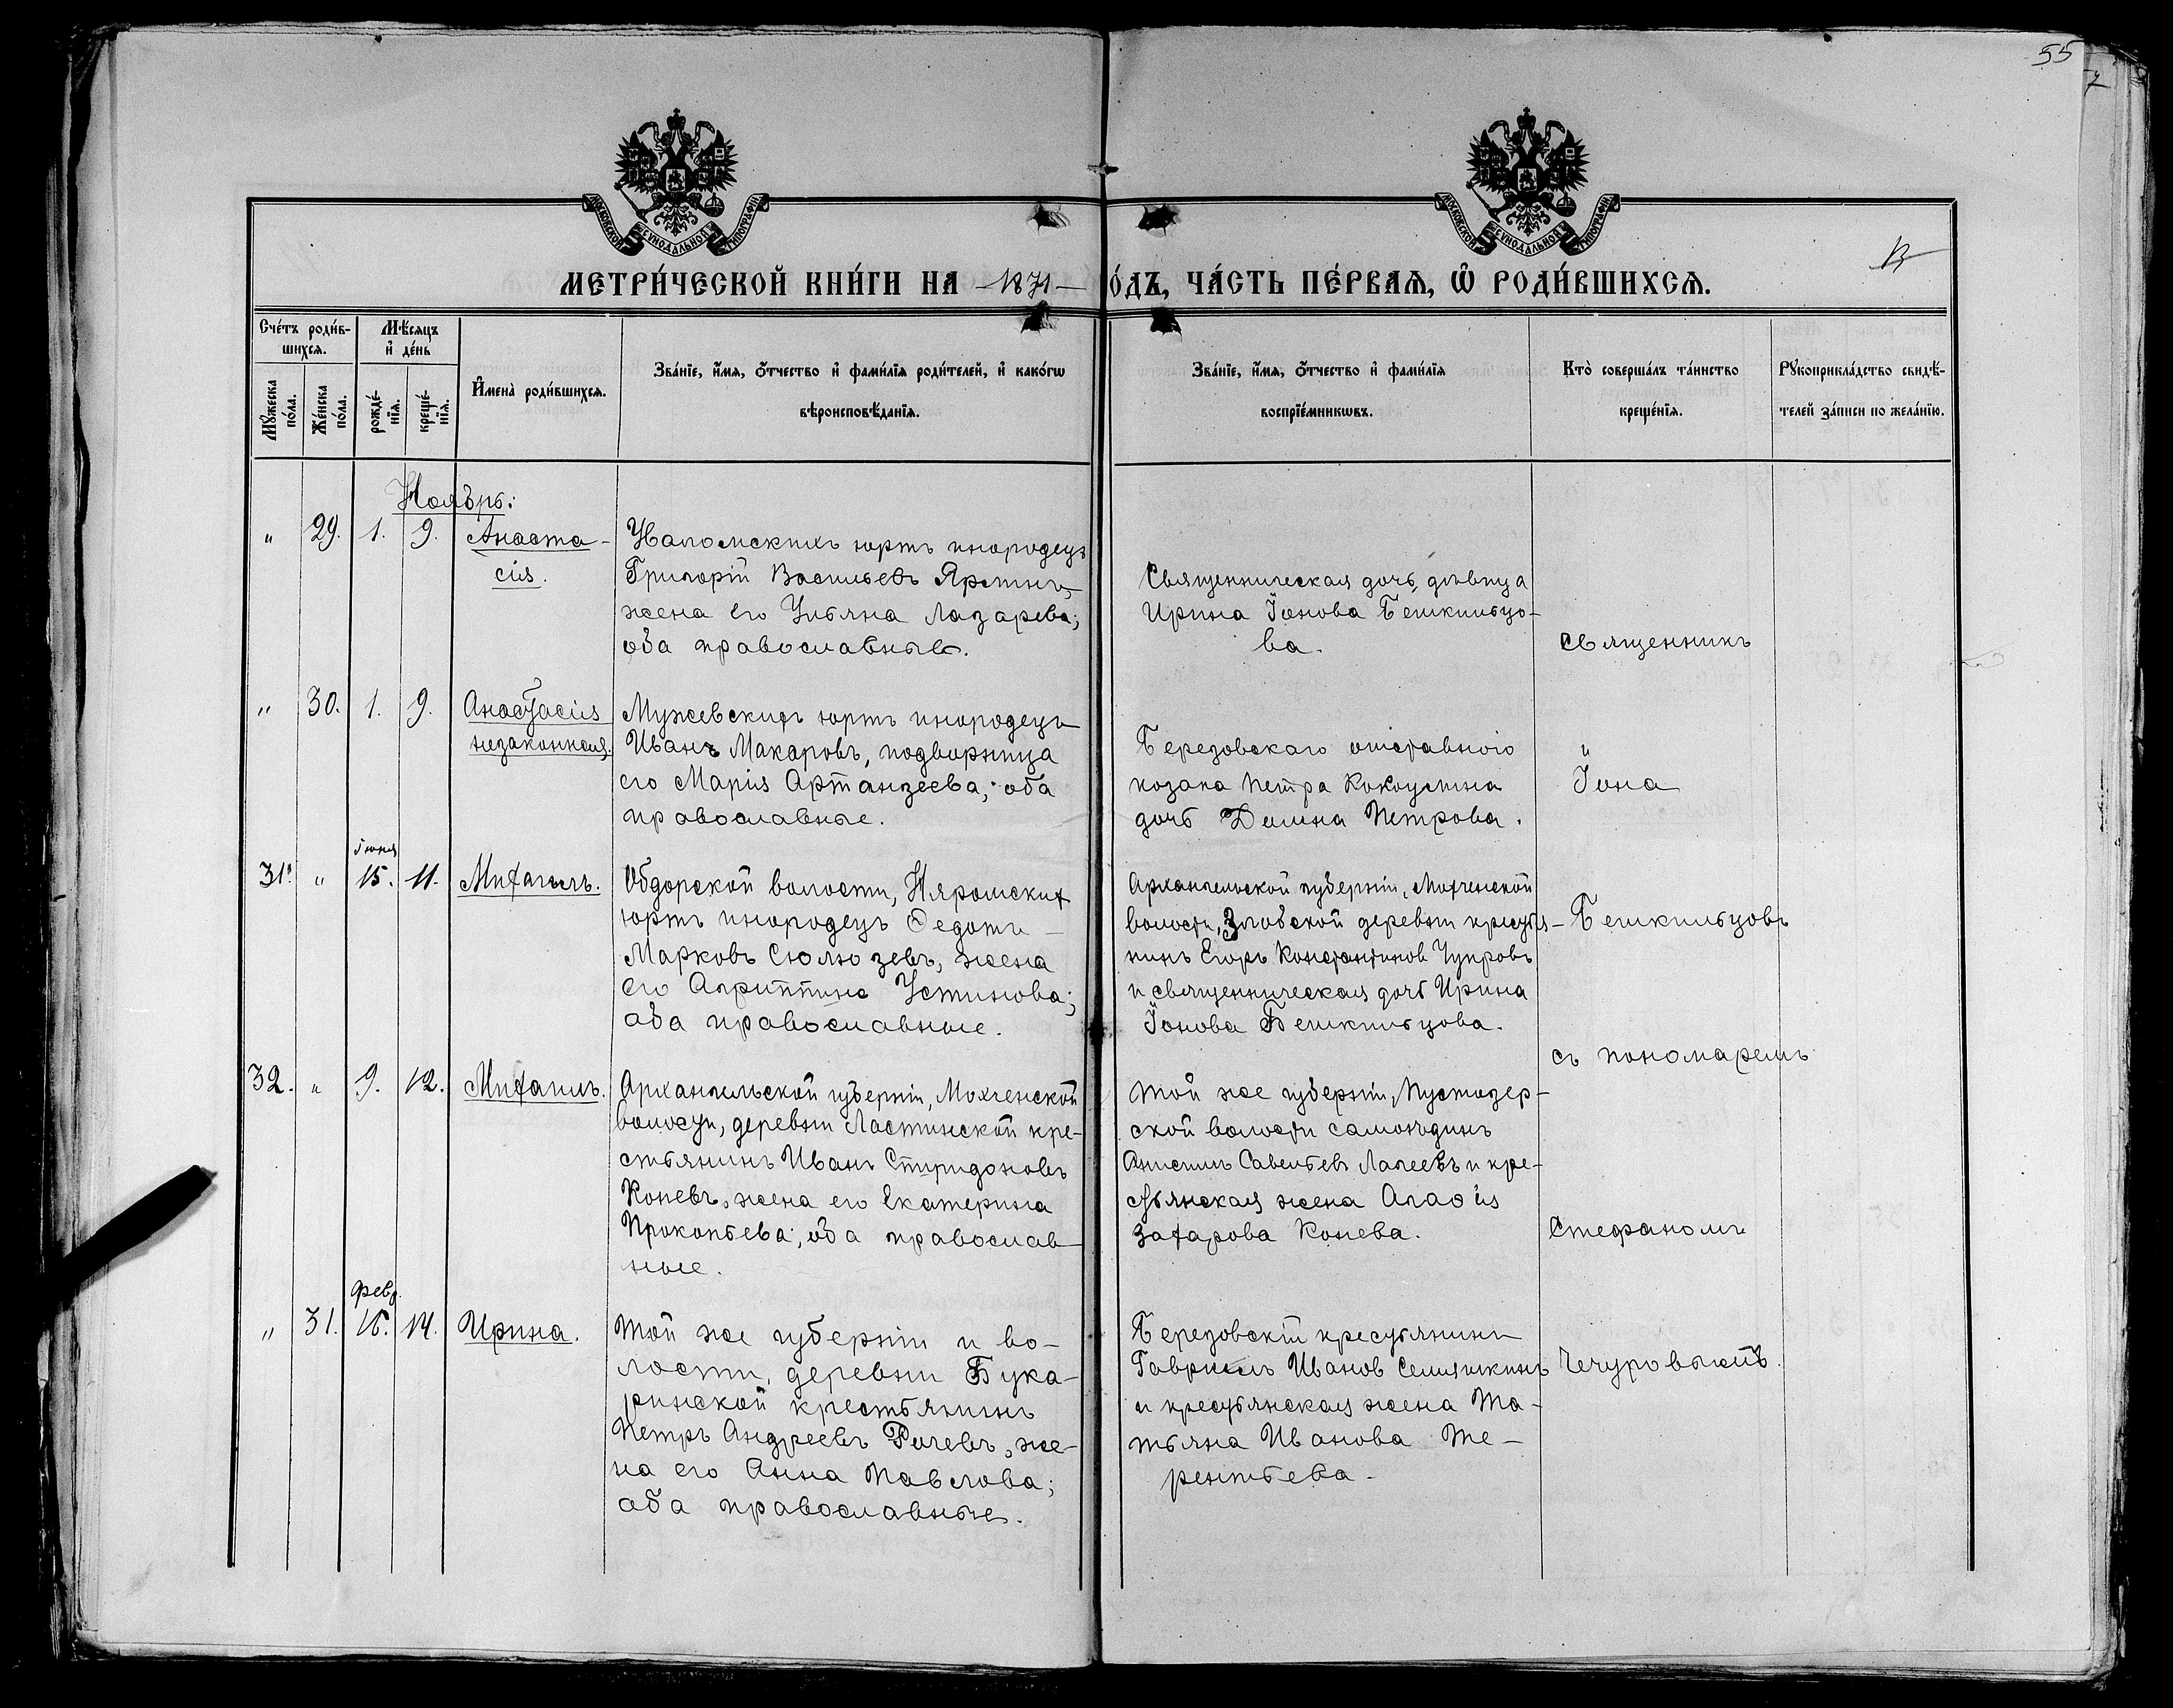 55
7
МОСКОВСКОЙ СѴНОДАЛЬНОЙ ТИПОГРАФІИ
МОСКОВСКОЙ СѴНОДАЛЬНОЙ ТИПОГРАФІИ
МЕТРИ́ЧЕСКОЙ КНИ́ГИ НА 1871 О́ДЪ, ЧА́СТЬ ПЕ́РВАѦ, Ѽ РОДИ́ВШИХСѦ.
Сче́тъ роди́в-
шихсѧ.
Мꙋ́жеска
по́ла.
Же́нска
по́ла.
Мѣ́сѧцъ
и҆ де́нь
рожде́-
нїѧ.
креще́-
нїѧ.
И҆мена̀ роди́вшихсѧ.
Зва́нїе, и҆́мѧ, ѻ҆́тчество и҆ фами́лїѧ роди́телей, и҆ како́гѡ
вѣроисповѣ́данїѧ.
Зва́нїе, и҆́мѧ, ѻ҆́тчество и҆ фами́лїѧ
воспрїе́мникѡвъ.
Кто̀ соверша́лъ та́инство
креще́нїѧ.
Рꙋкоприкла́дство свидѣ́-
телей за́писи по жела́нїю.
Ноябрь:
" 29. 1. 9. Анаста-
сія.
Григорій Васильевъ Яркинъ,
жена его Ульяна Лазарева;
оба православные.
Священническая дочь дѣвица
Ирина Іонова Бешкильцо-
ва.
Священникъ
" 30. 1. 9. Анастасія
незаконная.
Мужевскихъ юртъ инородецъ
Иванъ Макаровъ, подворница
его Марія Артанзеева; оба
православные.
Березовскаго отставного
козака Петра Кокоулина
дочь Петрова.
"
Іона
іюня
31. " 15. 11. Михаилъ.
Обдорской волости, Няромских
юртъ инородецъ Ѳедотъ
Марковъ Сюлюзевъ, жена
его Агриппина Устинова;
оба православные.
Архангельской губерніи, Мохченской
волости, деревни крестья-
нинъ Егоръ Константинов Чупровъ
и священническая дочь Ирина
Іонова Бешкильцова.
Бешкильцовъ
съ пономаремъ
32. " 9. 12. Михаилъ.
Архангельской губерніи, Мохченской
волости, деревни Ластинской кре-
стьянинъ Иванъ Спиридоновъ
Коневъ, жена его Екатерина
Прокопьева; оба православ-
ные.
Той же губерніи, Пустозер-
ской волости самоѣдинъ
Анисимъ Савельевъ Лагеевъ и кре-
стьянская жена
Захарова Конева.
Стефаномъ
февр.
" 31. 15. 14. Ирина.
Той же губерніи и во-
лости, деревни Бука-
ринской крестьянинъ
Петръ Андреевъ Рочевъ, же-
на его Анна Павлова;
оба православные.
Березовскій крестьянинъ
Гавриилъ Иванов Семяшкинъ
и крестьянская жена Та-
тьяна Иванова Те-
рентьева.
Чечуровымъ.